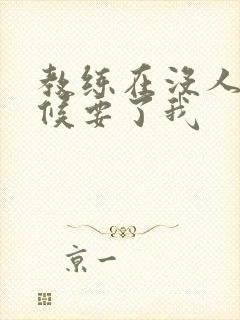 教练在没人
候要了我
京一